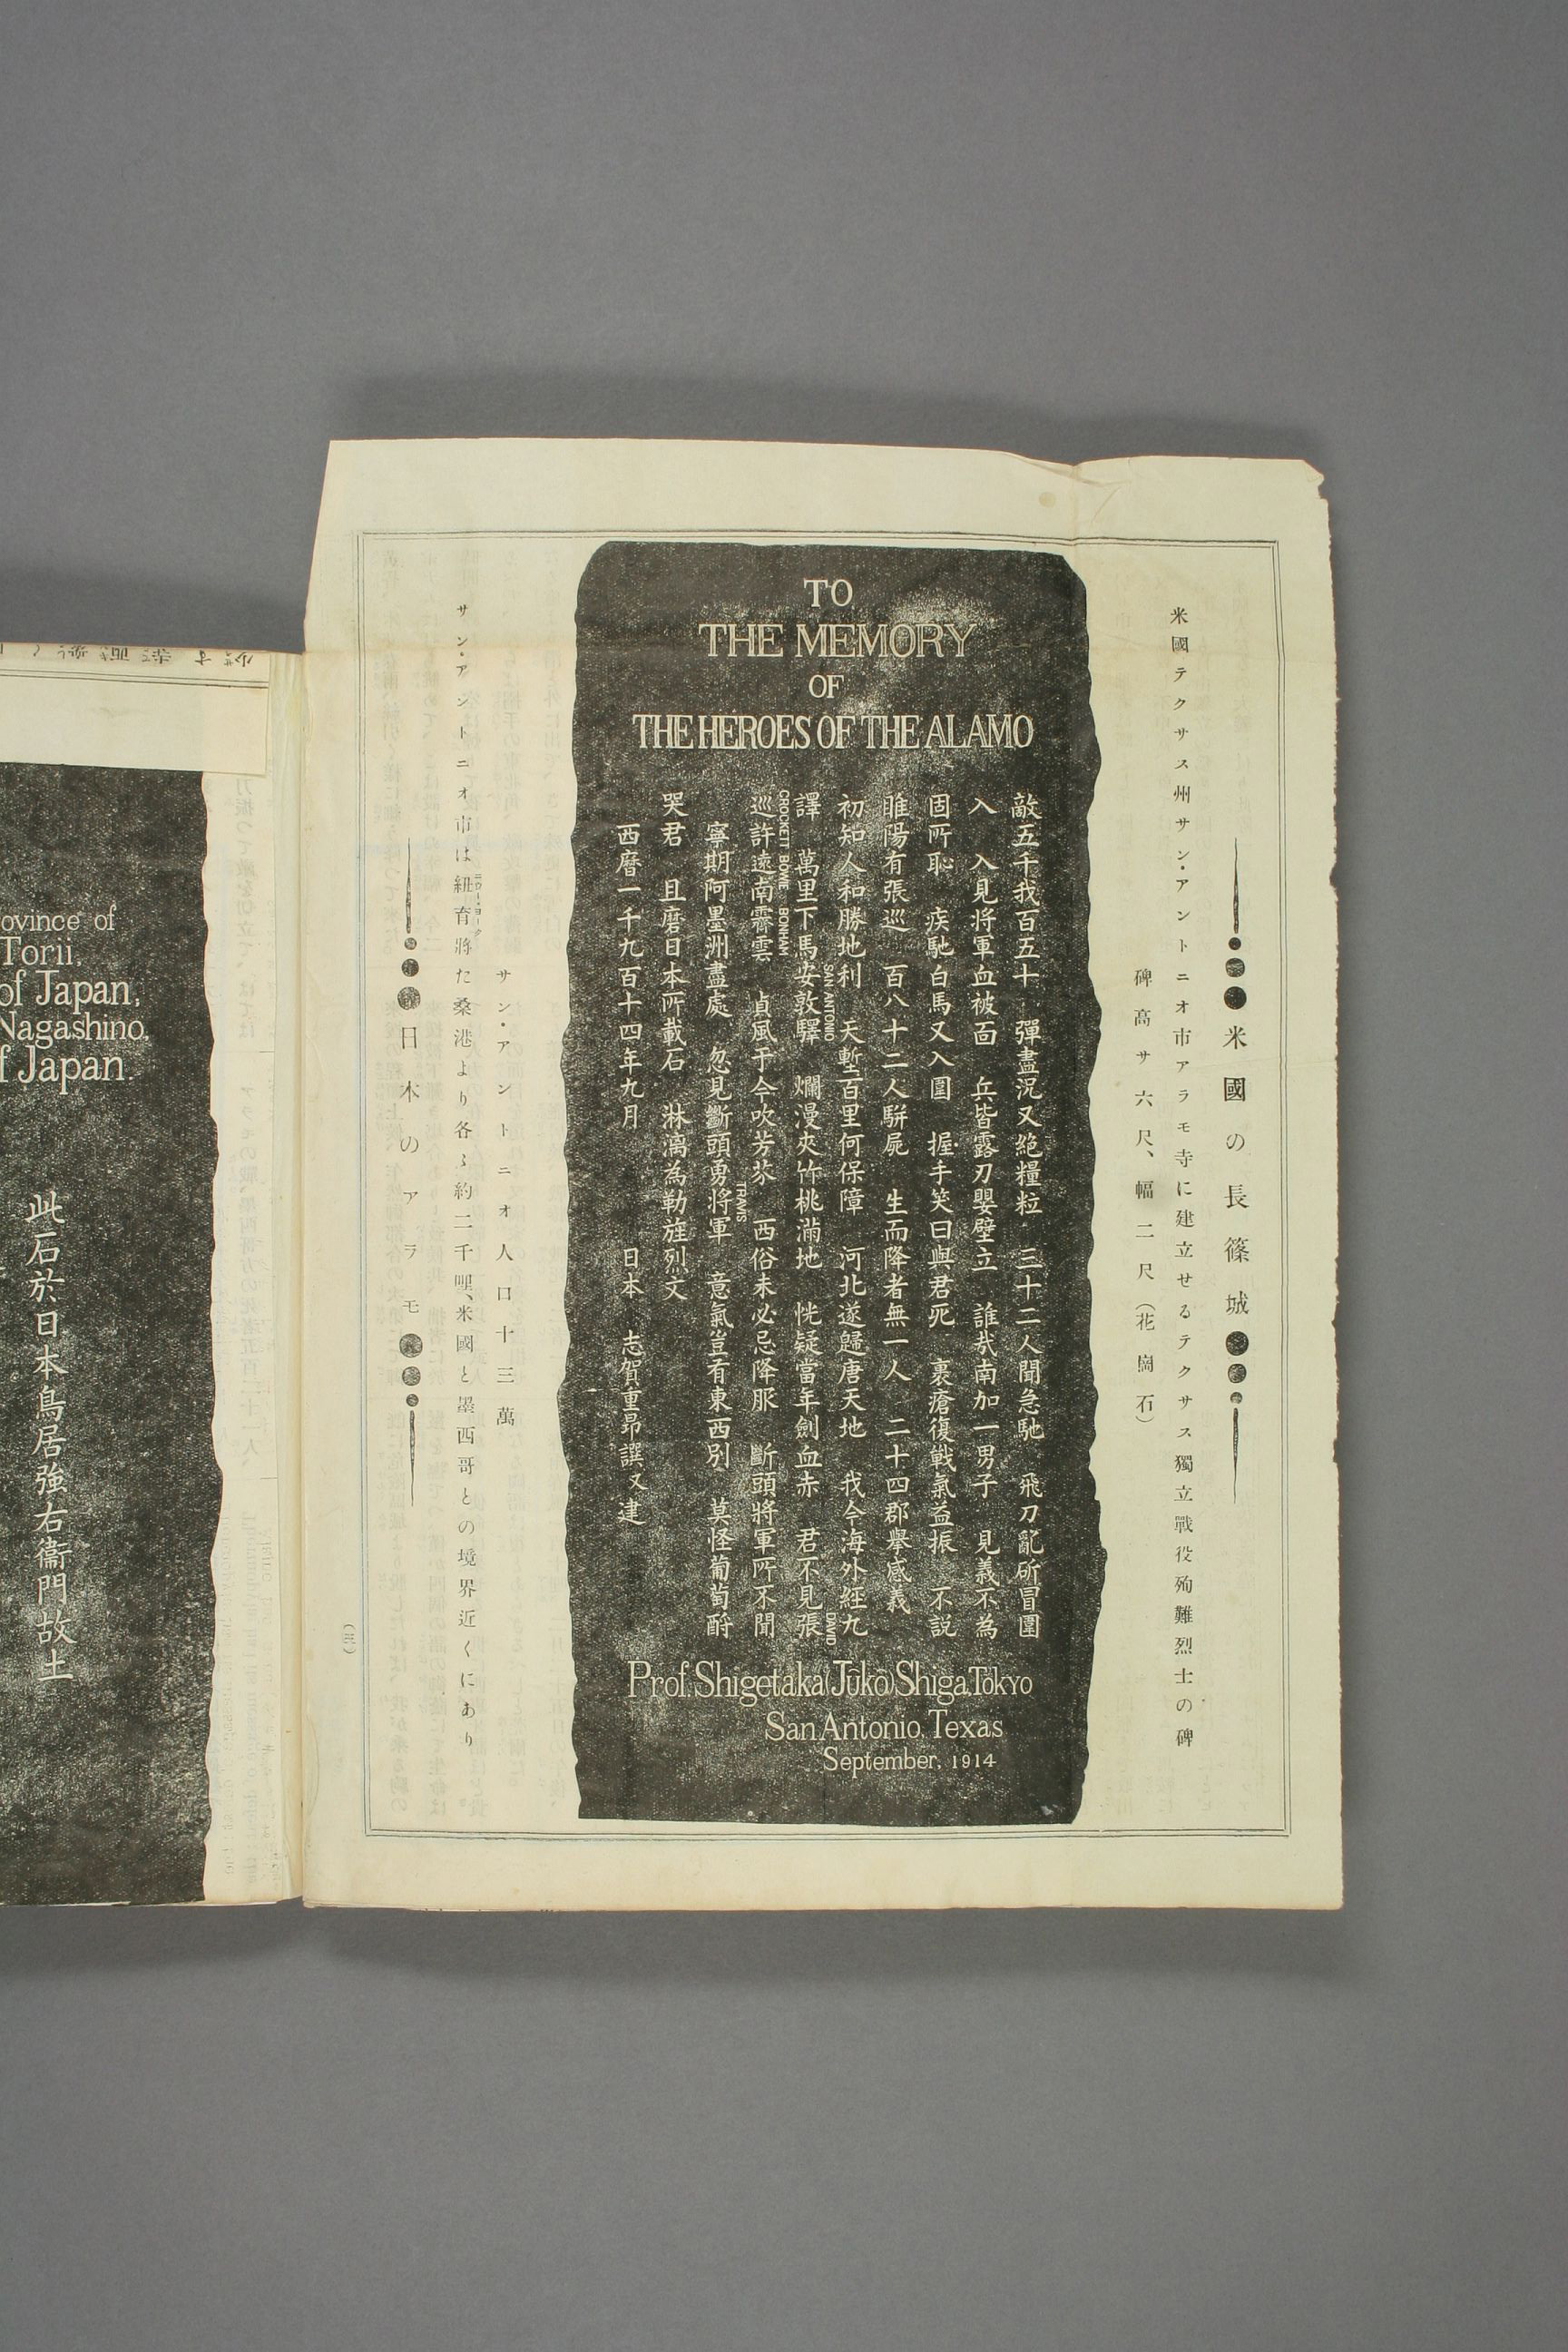 米國の長篠城
米國テクサス州サン・アントニオ市アラモ寺に建立せるテクサス獨立戰役殉難烈士の碑
碑高サ六尺、幅二尺（花崗石）
TO
THE MEMORY
OF
THE HEROES OF THE ALAMO
敵五千我百五十 彈盡況又絶糧粒 三十二人聞急馳 飛刀亂斫冒圍
入 入見將軍血被面 兵皆露刃嬰壁立 誰哉南加一男子 見義不為
固所恥 疾馳白馬又入圍 握手笑曰與君死 裹瘡復戦氣益振 不説
睢陽有張巡 百八十二人駢屍 生而降者無一人 二十四郡擧感義
初知人和勝地利 天塹百里何保障 河北遂歸唐天地 我今海外經九
譯 萬里下馬安敦驛 爛漫夾竹桃滿地 恍疑當年劍血赤 君不見張
SAN ANTONIO
DAVID
巡許遠南霽雲 貞風于今吹芳芬 西俗未必忌降服 斷頭將軍所不聞
CROCKETT BOWIE BONHAM
寧期阿墨洲盡處 忽見斷頭勇將軍 意氣豈有東西別 莫怪葡萄酹
TRAVIS
哭君 且磨日本所載石 淋漓為勒旌烈文
西暦一千九百十四年九月 日本 志賀重昻譔又建
Prof. Shigetaka (Jūkō) Shiga, Tōkyo
San Antonio, Texas
September, 1914
サン・アントニオ人口十三萬
サン・アントニオ市は紐育將た桑港より各〻約二千哩、米國と墨西哥との境界近くにあり
ニユーヨーク
日本のアラモ
（三）
ovince of
Torii,
of Japan,
Nagashino,
f Japan.
此石於日本鳥居強右衞門故土